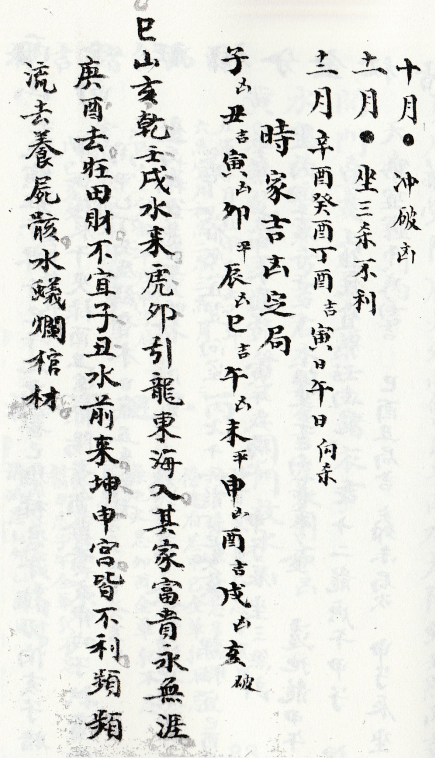 十月●冲破凶
十一月●坐三杀不利
十二月辛酉癸酉丁酉吉寅日午日向杀
時家吉凶定局
子凶丑吉寅凶卯平辰凶巳吉午凶未平申凶酉吉戌凶亥破
巳山亥乾壬戌水来虎卯引龍東海入其家富貴永無涯
庚酉去旺田財不宜子丑水前来坤申宫皆不利頻頻
流去養屍骸水蟻爛棺材